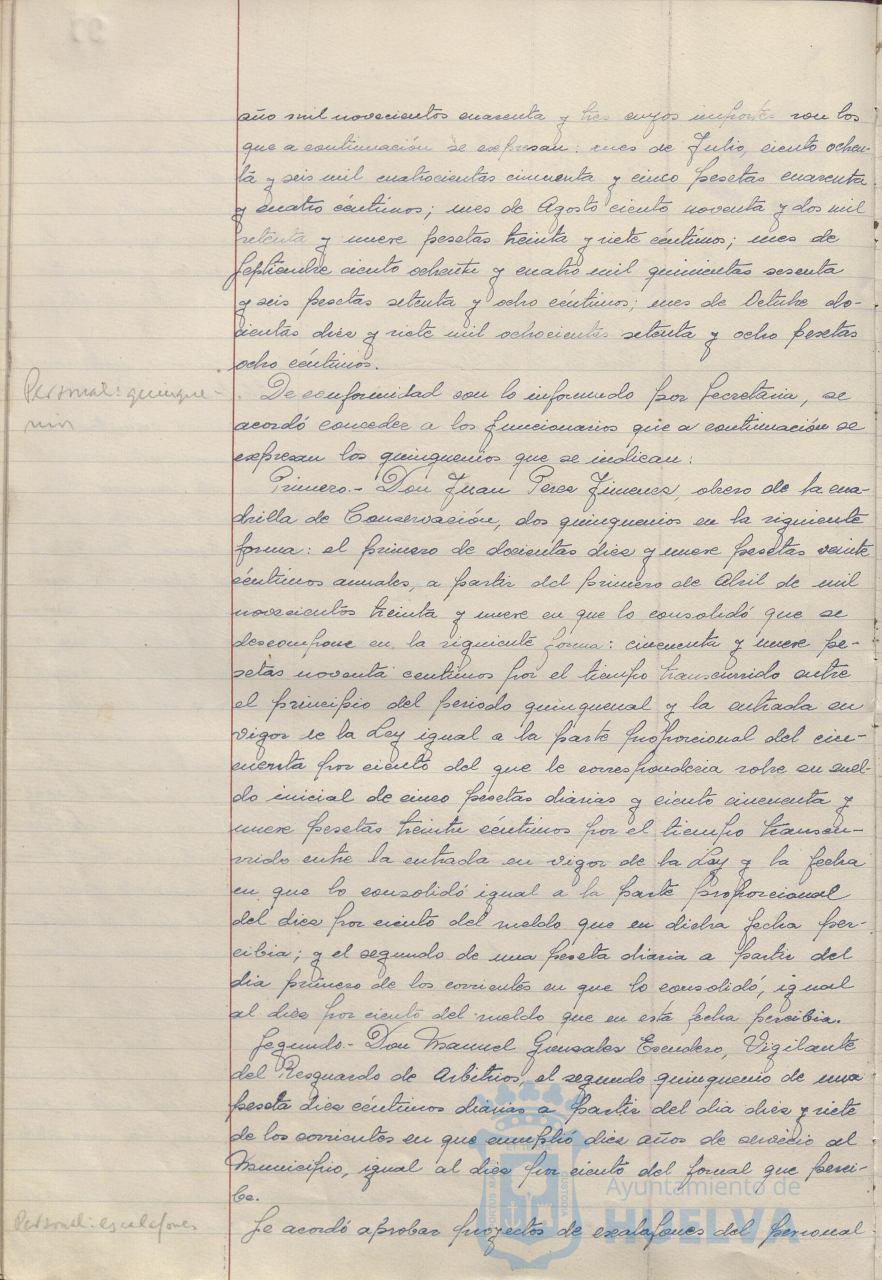 año mil novecientos cuarenta y tres cuyos importes son los
que a continuación se expresan: mes de Julio, ciento ochen-
ta y seis mil cuatrocientas cincuenta y cinco pesetas cuarenta
y cuatro céntimos; mes de Agosto ciento noventa y dos mil
setenta y nueve pesetas treinta y siete céntimos; mes de
Septiembre ciento ochenta y cuatro mil quinientas sesenta
y seis pesetas setenta y ocho céntimos; mes de Octubre do-
cientas diez y siete mil ochocientas setenta y ocho pesetas
ocho céntimos.
Personal: quinque-
nios
De conformidad con lo informado por Secretaria, se
acordó conceder a los funcionarios que a continuación se
expresan los quinquenios que se indican:
Primero.- Don Juan Perez Jimenez, obrero de la cua-
drilla de Conservación, dos quinquenios en la siguiente
forma: el primero de docientas diez y nueve pesetas veinte
céntimos anuales, a partir del primero de Abril de mil
novecientos treinta y nueve en que lo consolidó que se
descompone en la siguiente forma: cincuenta y nueve pe-
setas noventa centimos por el tiempo transcurrido entre
el principio del periodo quinquenal y la entrada en
vigor de la Ley igual a la parte proporcional del cin-
cuenta por ciento del que le corresponderia sobre su suel-
do inicial de cinco pesetas diarias y ciento cincuenta y
nueve pesetas treinta céntimos por el tiempo transcu-
rrido entre la entrada en vigor de la Ley y la fecha
en que lo consolidó igual a la parte proporcional
del diez por ciento del sueldo que en dicha fecha per-
cibia; y el segundo de una peseta diaria a partir del
dia primero de los corrientes en que lo consolidó, igual
al diez por ciento del sueldo que en esta fecha percibia.
Segundo- Don Manuel Gonzalez Escudero, Vigilante
del Resguardo de Arbitrios, el segundo quinquenio de una
peseta diez céntimos diarias a partir del dia diez y siete
de los corrientes en que cumplió diez años de servicio al
Municipio, igual al diez por ciento del jornal que perci-
be.
Personal: escalafones
Se acordó aprobar proyectos de escalafones del personal
Ayuntamiento de
HUELVA